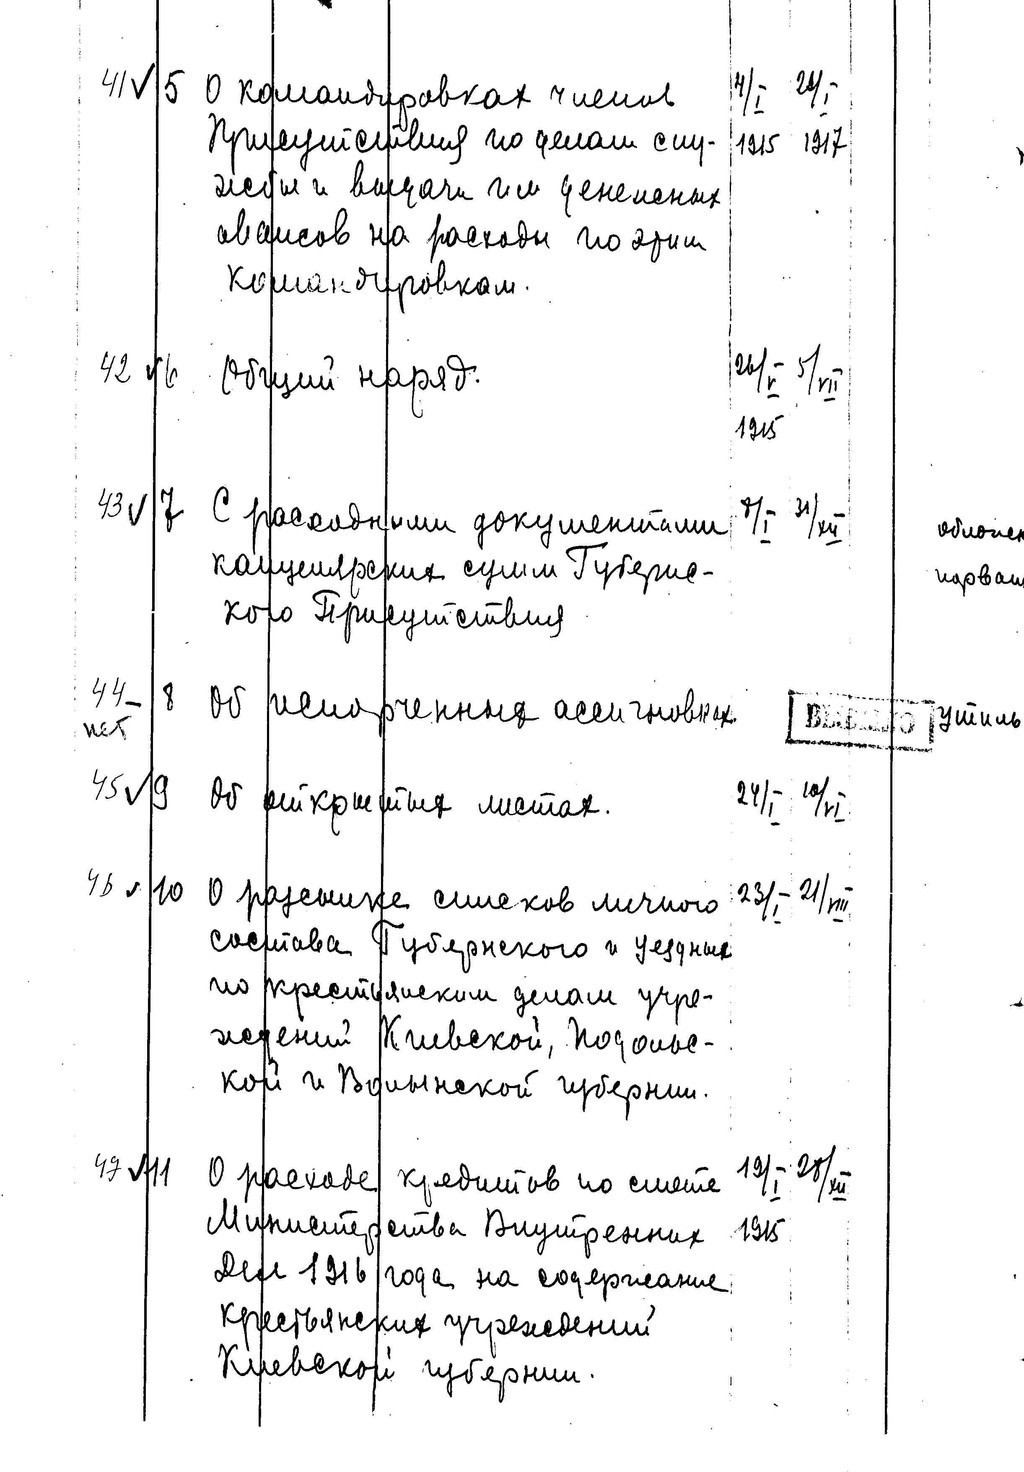 41 ✓ 5 О командировках членов 4/I 20/I
Присутствия по делам слу- 1915 1917
жбы и выдачи им денежных
авансов на расходы по этим
командировкам.
42 ✓ 6 Общий наряд. 26/V 5/VII
1915
43 ✓ 7 С расходными документами 8/I 31/XII
канцелярских сумм Губернс-
кого Присутствия
44 - 8 Об испорченных ассигновках. утиль
нет
45 ✓ 9 Об открытых листах. 24/I 10/VI
46 ✓ 10 О разсылке списков личного 23/I 21/VIII
состава Губернского и уездных
по крестьянским делам учре-
ждений Киевской, Подольс-
кой и Волынской губернии.
47 ✓ 11 О расходе кредитов по смете 19/I 28/XII
Министерства Внутренних 1915
Дел 1916 года на содержание
крестьянских учреждений
Киевской губернии.